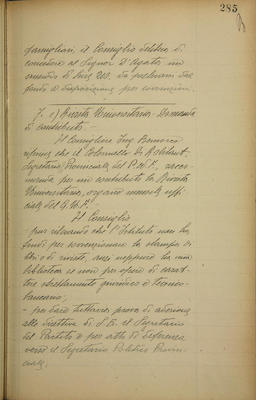 285
famigliari, il Consiglio delibera di
concedere al Signor D'Agata un
sussidio di Lire 200, da prelevarsi dal
fondo a disposizione per
7. c) Rivista Universitaria - Domanda
di contributo. -
Il Consigliere Ing.
riferisce che il Colonnello
Segretario Provinciale del P.N.F., racco-
manda per un contributo la Rivista
Universitaria, organo mensile uffi-
ciale del G.U.F.
Il Consiglio
- pur rilevando che l'Istituto non ha
fondi per sovvenzionare la stampa di
libri o di riviste, anzi neppure ha una
biblioteca se non per opere di carat-
tere strettamente giuridico e tecnico-
bancario;
- per dare tuttavia prova di adesione
alle direttive di S.E. il Segretario
del Partito e per atto di deferenza
verso il Segretario Politico Provin-
ciale,